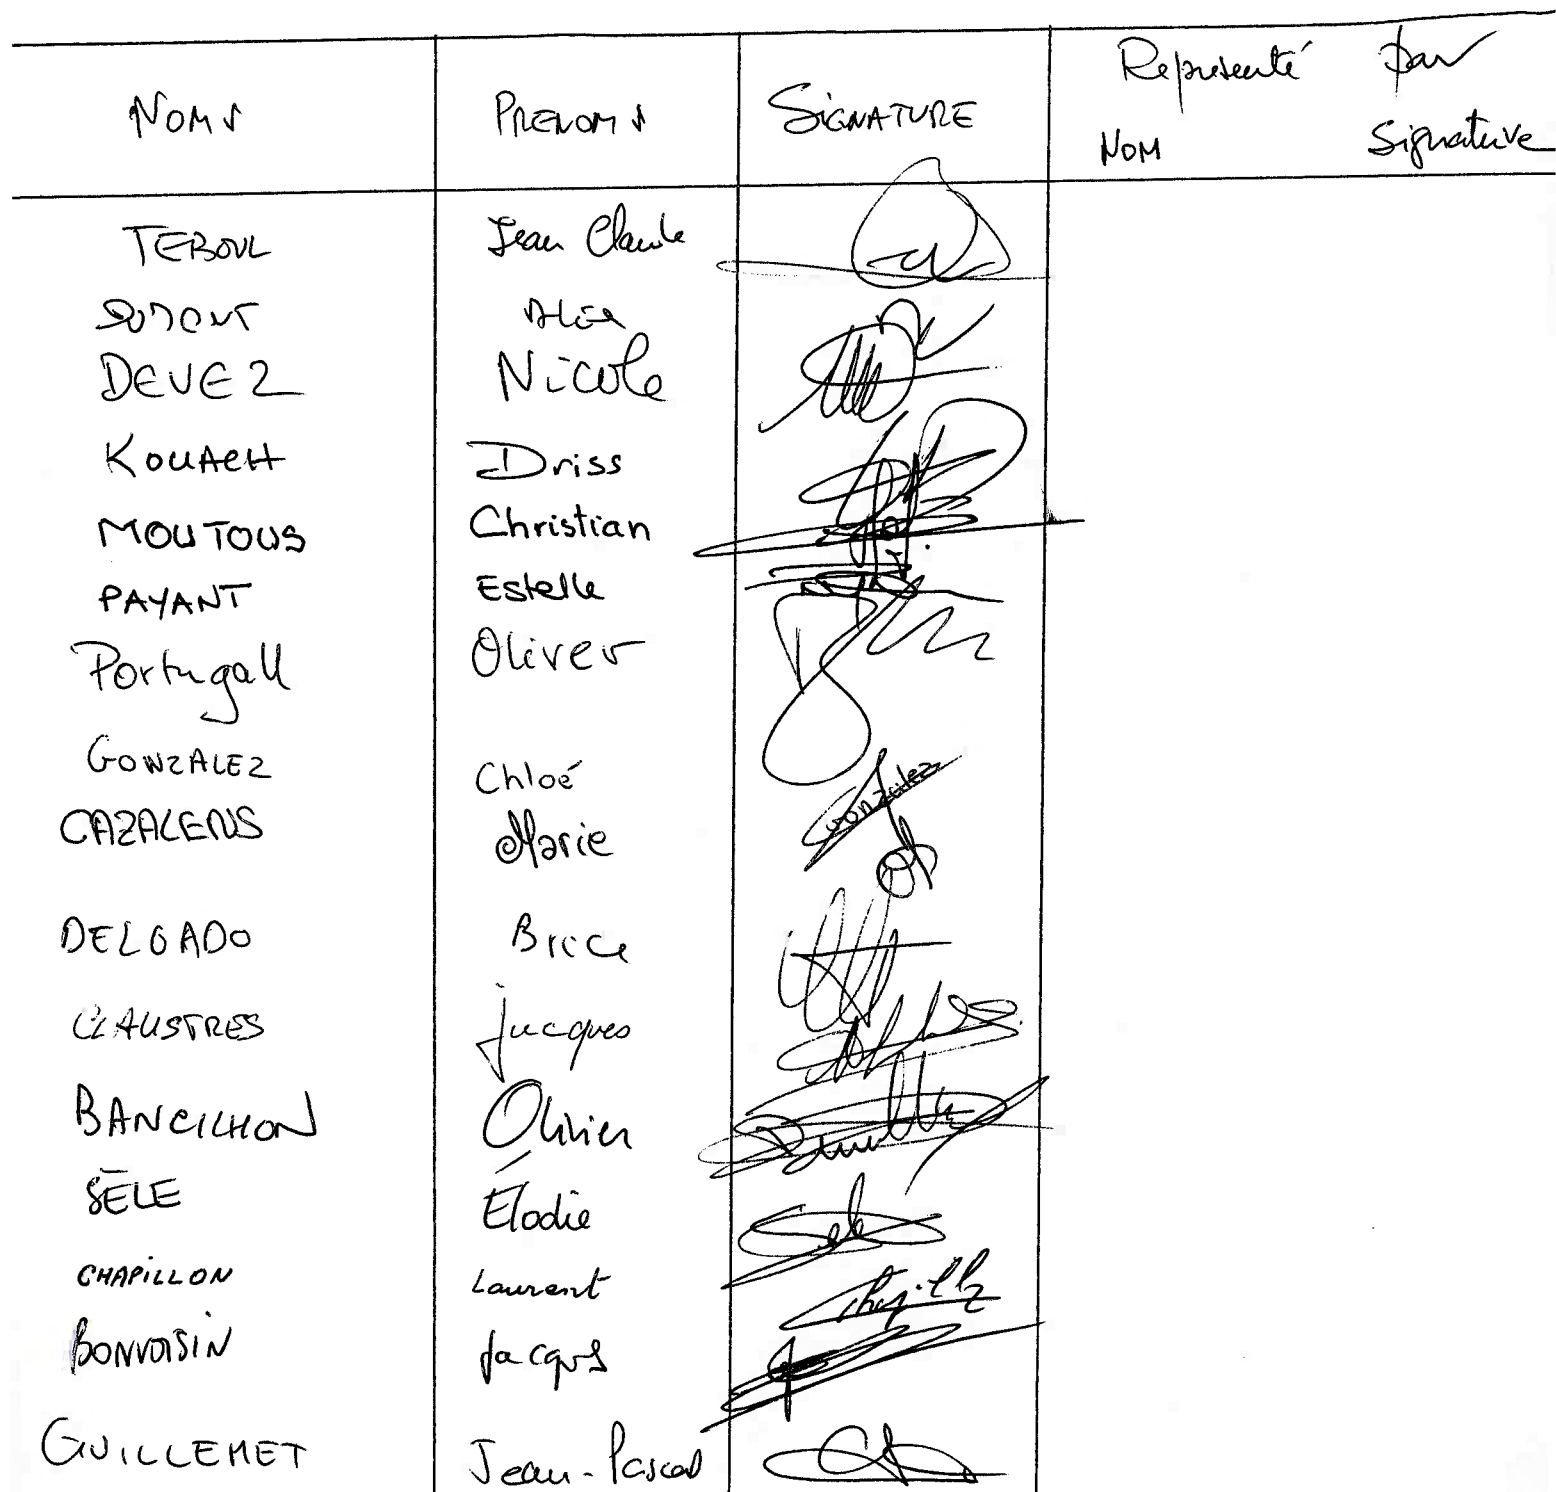 Représenté par
NOMS PRENOMS SIGNATURE NOM Signature
TEBOUL Jean Claude
DUMONT
DEVEZ Nicole
KOUACH Driss
MOUTOUS Christian
PAYANT Estelle
Portugall Oliver
GONZALEZ Chloé Gonzalez
CAZALENS Marie
DELGADO Brice
CLAUSTRES Jacques
BANCILHON Olivier
SÉLÉ Élodie
CHAPILLON Laurent
BONVOISIN Jacques
GUILLEMET Jean-Pascal